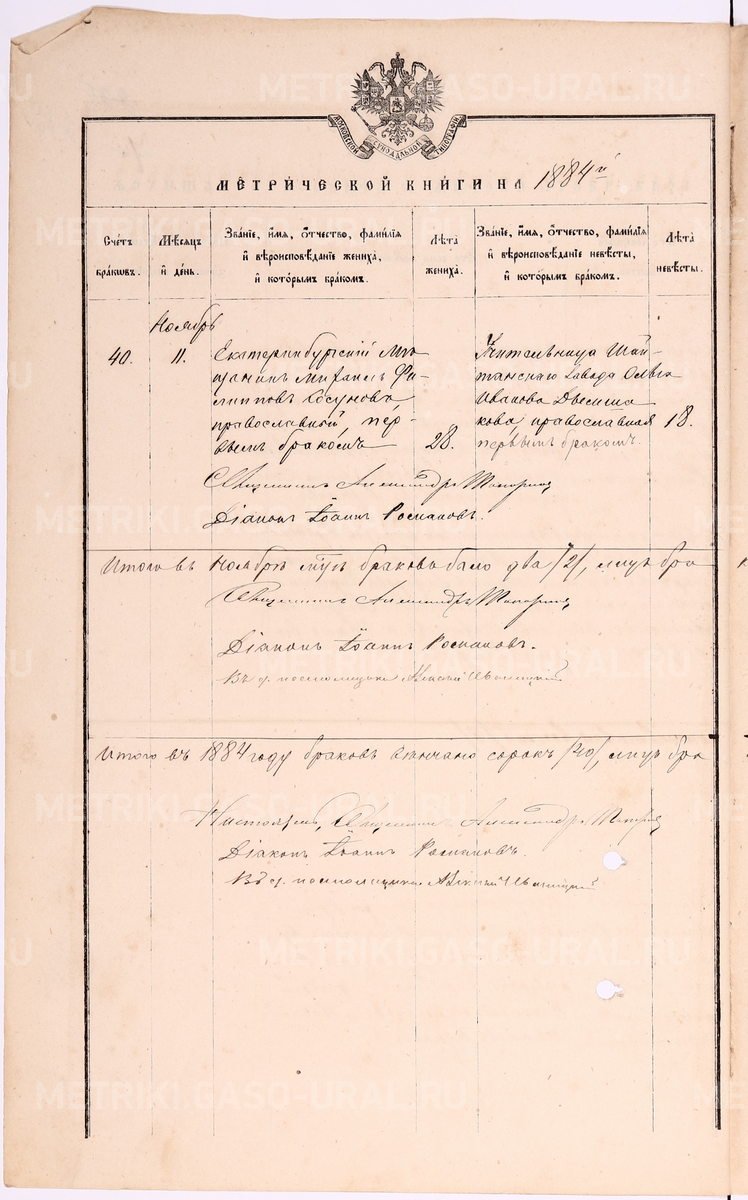 МОСКОВСКОЙ СѴНОДАЛЬНОЙ ТИПОГРАФІИ
МЕТРИЧЕСКОЙ КНИГИ НА 1884й
Счетъ браковъ.
Мѣсяцъ и день.
Званіе, имя, отчество, фамилія и вѣроисповѣданіе жениха, и которымъ бракомъ.
Лѣта жениха.
Званіе, имя, отчество, фамилія и вѣроисповѣданіе невѣсты, и которымъ бракомъ.
Лѣта невѣсты.
Ноябрь
40.
11.
Екатеринбургскій мѣ
щанинъ Михаилъ Фи
липповъ
православный, пер-
вымъ бракомъ
28.
Жительница Шай
танскаго завода Ольга
Иванова
кова православная
первымъ бракомъ.
18.
Священникъ Александръ Топорковъ
Діаконъ Іоаннъ Романовъ.
Итого въ Ноябрѣ м-цѣ браковъ было два /2/, лицъ бра
Священникъ Александръ Топорковъ
Діаконъ Іоаннъ Романовъ.
Въ д. псаломщика
Итого въ 1884 году браковъ вѣнчано сорокъ /40/, лицъ бра
Священникъ Александръ Топорковъ
Діаконъ Іоаннъ Романовъ.
Въ д. псаломщика
METRIKI.GASO-URAL.RU